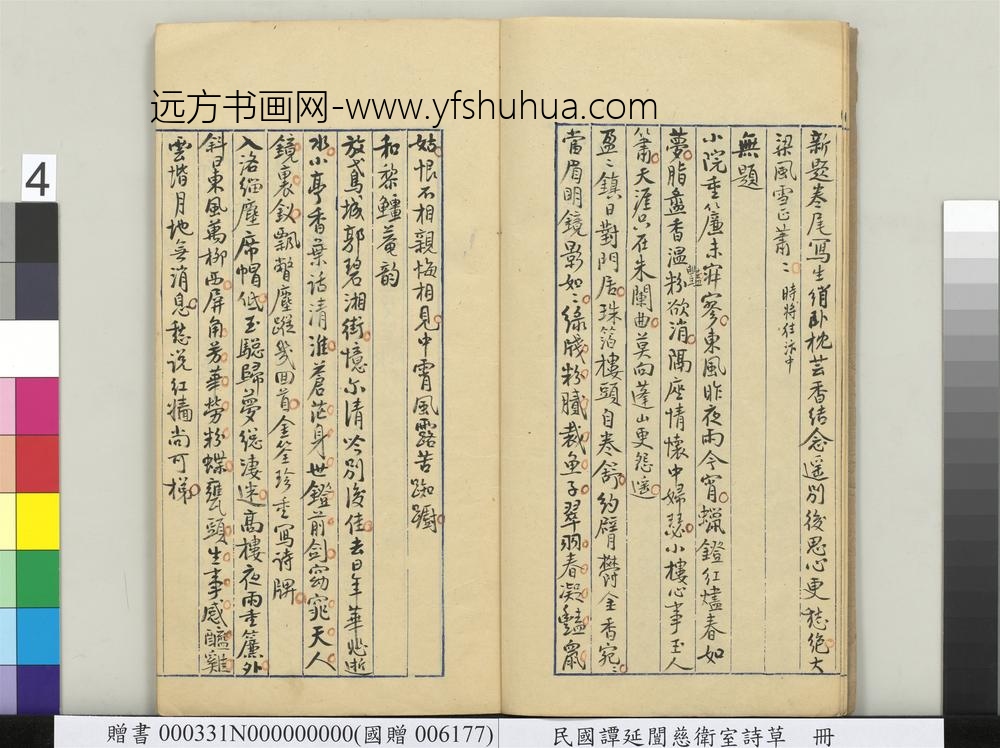 远方书画网-www.yfshuhua.com
新題卷尾寫生綃卧枕芸香結念遥別後思心更愁絶大
梁風雪正蕭〻時將往汴中
無題
小院重簾未寂寥東風昨夜雨今宵蠟鐙紅燼春如
夢脂盝香温粉欲消隔座情懷中婦瑟小樓心事玉人
簫天涯只在朱闌曲莫向蓬山更怨遥
盈〻鎮日對門居珠箔樓頭自卷舒約臂欎金香宛〻
當眉明鏡影如〻緑牋粉膩裁魚子翠羽春凝豔鼠
姑恨不相親悔相見中宵風露苦踟躕
和黎鱷菴韵
放鳶城郭碧湘街憶尔清吟別後佳去日年華逝
水小亭香葉話清淮蒼茫身世鐙前劍窈窕天人
鏡裏釵飄瞥塵蹤幾回首金筌珍重寫詩牌
入洛緇塵席帽低玉驄歸夢總凄迷高樓夜雨重簾外
斜日東風萬柳西屏角芳華勞粉蝶甕頭生事感醯雞
雲堦月地無消息愁説紅牆尚可梯
4
贈書 000331N000000000(國贈 006177)
民國譚延闓慈衛室詩草 冊